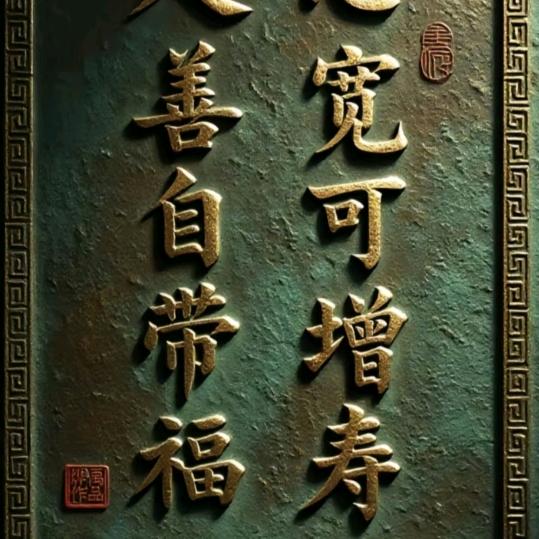 宽可增寿
善自带福